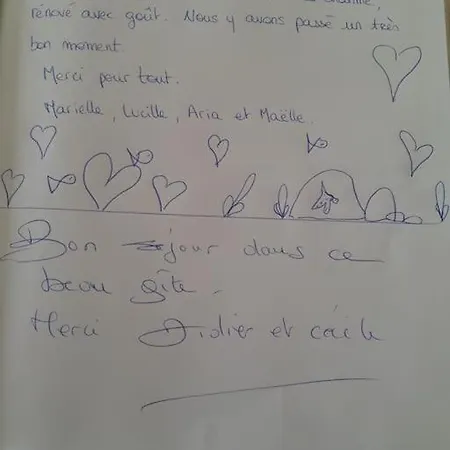 rénové avec goût. Nous y avons passé un très
bon moment.
Merci pour tout.
Marielle, Lucille, Aria et Maëlle.
Bon séjour dans ce
beau gîte.
Merci Didier et cécile